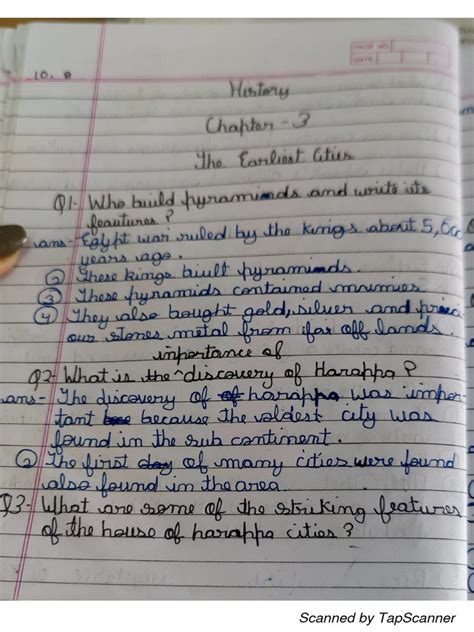 PAGE NO.
DATE
10. 8
History
Chapter - 3
The Earliest Cities
Q1- Who build pyraminds and write its
feautures ?
ans- Egypt war ruled by the kings about 5,
years ago.
② These kings biult pyraminds.
③ These pyramids contained mumies
④ They also bought gold, silver and
our stones metal from far off lands.
importance of
Q2- What is the ^ discovery of Harappa ?
ans- The discovery of of harappa was impor
tant because the oldest city was
found in the sub continent.
② The first of many cities were found
also found in the area.
Q3- What are some of the striking features
of the house of harappa cities ?
Scanned by TapScanner